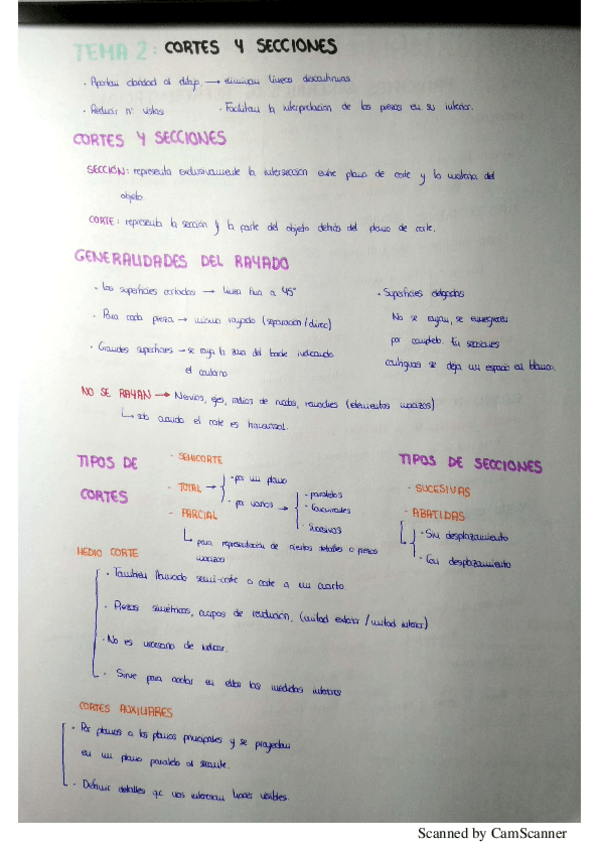 TEMA 2: CORTES Y SECCIONES
· Aportan claridad al dibujo → eliminan líneas discontinuas
· Reducir nº vistas · Facilitan la interpretación de las piezas en su interior.
CORTES Y SECCIONES
SECCIÓN: representa exclusivamente la intersección entre plano de corte y la materia del
objeto.
CORTE: representa la sección y la parte del objeto detrás del plano de corte.
GENERALIDADES DEL RAYADO
· Las superficies cortadas → línea fina a 45°
· Para cada pieza → mismo rayado (separación/direc)
· Grandes superficies → se raya la zona del borde indicando
el contorno
· Superficies delgadas
No se rayan, se ennegrecen
por completo. En secciones
contiguas se deja un espacio en blanco.
NO SE RAYAN → Nervios, ejes, radios de ruedas, remaches (elementos macizos)
↳ solo cuando el corte es horizontal.
TIPOS DE
CORTES
- SEMICORTE
- TOTAL → - por un plano
- por varios → - paralelos
- Concurrentes
- Sucesivos
- PARCIAL
↳ para representación de ciertos detalles o piezas
macizas
TIPOS DE SECCIONES
- SUCESIVAS
- ABATIDAS
- Sin desplazamiento
- Con desplazamiento
MEDIO CORTE
· También llamado semi-corte o corte a un cuarto
· Piezas simétricas, cuerpos de revolución, (mitad exterior/mitad interior)
· No es necesario de indicar.
· Sirve para acotar en ellas las medidas interiores
CORTES AUXILIARES
· Por planos a los planos principales y se proyectan
en un plano paralelo al secante.
· Definir detalles que nos interesan líneas visibles.
Scanned by CamScanner